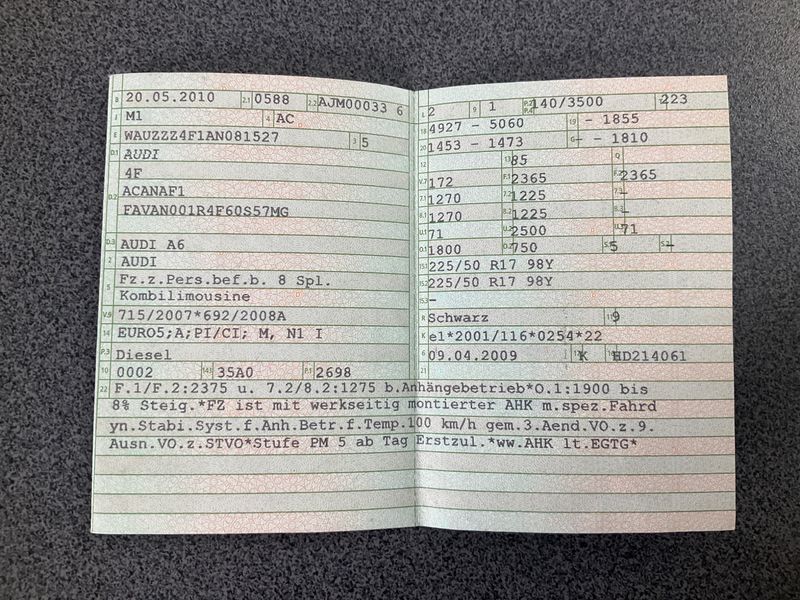 B 20.05.2010 2.1 0588 2.2 AJM00033 6
J M1 4 AC
E WAUZZZ4F1AN081527 3 5
D.1 AUDI
4F
D.2 ACANAF1
FAVAN001R4F60S57MG
D.3 AUDI A6
2 AUDI
5 Fz.z.Pers.bef.b. 8 Spl.
Kombilimousine
V.9 715/2007*692/2008A
14 EURO5;A;PI/CI; M, N1 I
P.3 Diesel
10 0002 14.1 35A0 P.1 2698
L 2 9 1 P.2 P.4 140/3500 T 223
18 4927 - 5060 19 - 1855
20 1453 - 1473 G - - 1810
12 13 85 Q
V.7 172 F.1 2365 F.2 2365
7.1 1270 7.2 1225 7.3 -
8.1 1270 8.2 1225 8.3 -
U.1 71 U.2 2500 U.3 71
O.1 1800 O.2 750 S.1 5 S.2 -
15.1 225/50 R17 98Y
15.2 225/50 R17 98Y
15.3 -
R Schwarz 11 9
K e1*2001/116*0254*22
6 09.04.2009 17 K 16 HD214061
21
22 F.1/F.2:2375 u. 7.2/8.2:1275 b.Anhängebetrieb*O.1:1900 bis
8% Steig.*FZ ist mit werkseitig montierter AHK m.spez.Fahrd
yn.Stabi.Syst.f.Anh.Betr.f.Temp.100 km/h gem.3.Aend.VO.z.9.
Ausn.VO.z.STVO*Stufe PM 5 ab Tag Erstzul.*ww.AHK lt.EGTG*